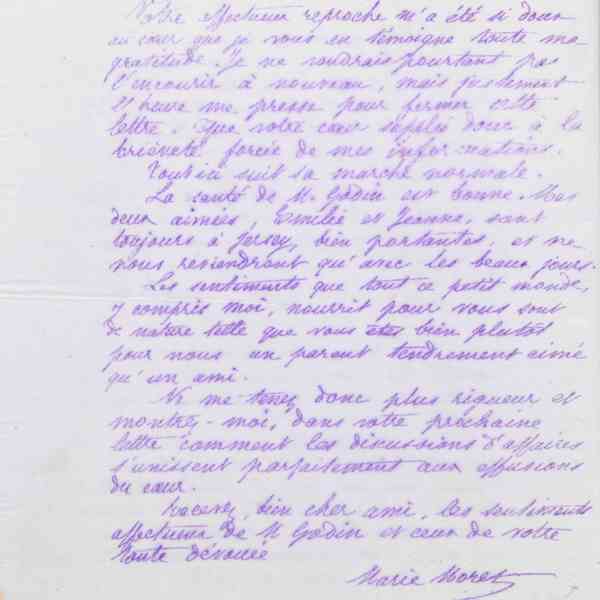 Votre affectueux reproche m'a été si doux
au cœur que je vous en témoigne toute ma
gratitude. Je ne voudrais pourtant pas
l'encourir à nouveau, mais justement
l'heure me presse pour fermer cette
lettre. Que votre cœur supplée donc à la
brièveté forcée de mes informations.
Tout ici suit sa marche normale.
La santé de M. Godin est bonne. Mes
deux aimées, Emilie et Jeanne, sont
toujours à Jersey, bien portantes, et ne
nous reviendront qu'avec les beaux jours.
Les sentiments que tout ce petit monde,
y compris moi, nourrit pour vous sont
de nature telle que vous êtes bien plutôt
pour nous un parent tendrement aimé
qu'un ami.
Ne me tenez donc plus rigueur et
montrez-moi, dans votre prochaine
lettre comment les discussions d'affaires
s'unissent parfaitement aux effusions
du cœur.
Recevez, bien cher ami, les sentiments
affectueux de M Godin et ceux de votre
toute dévouée
Marie Moret